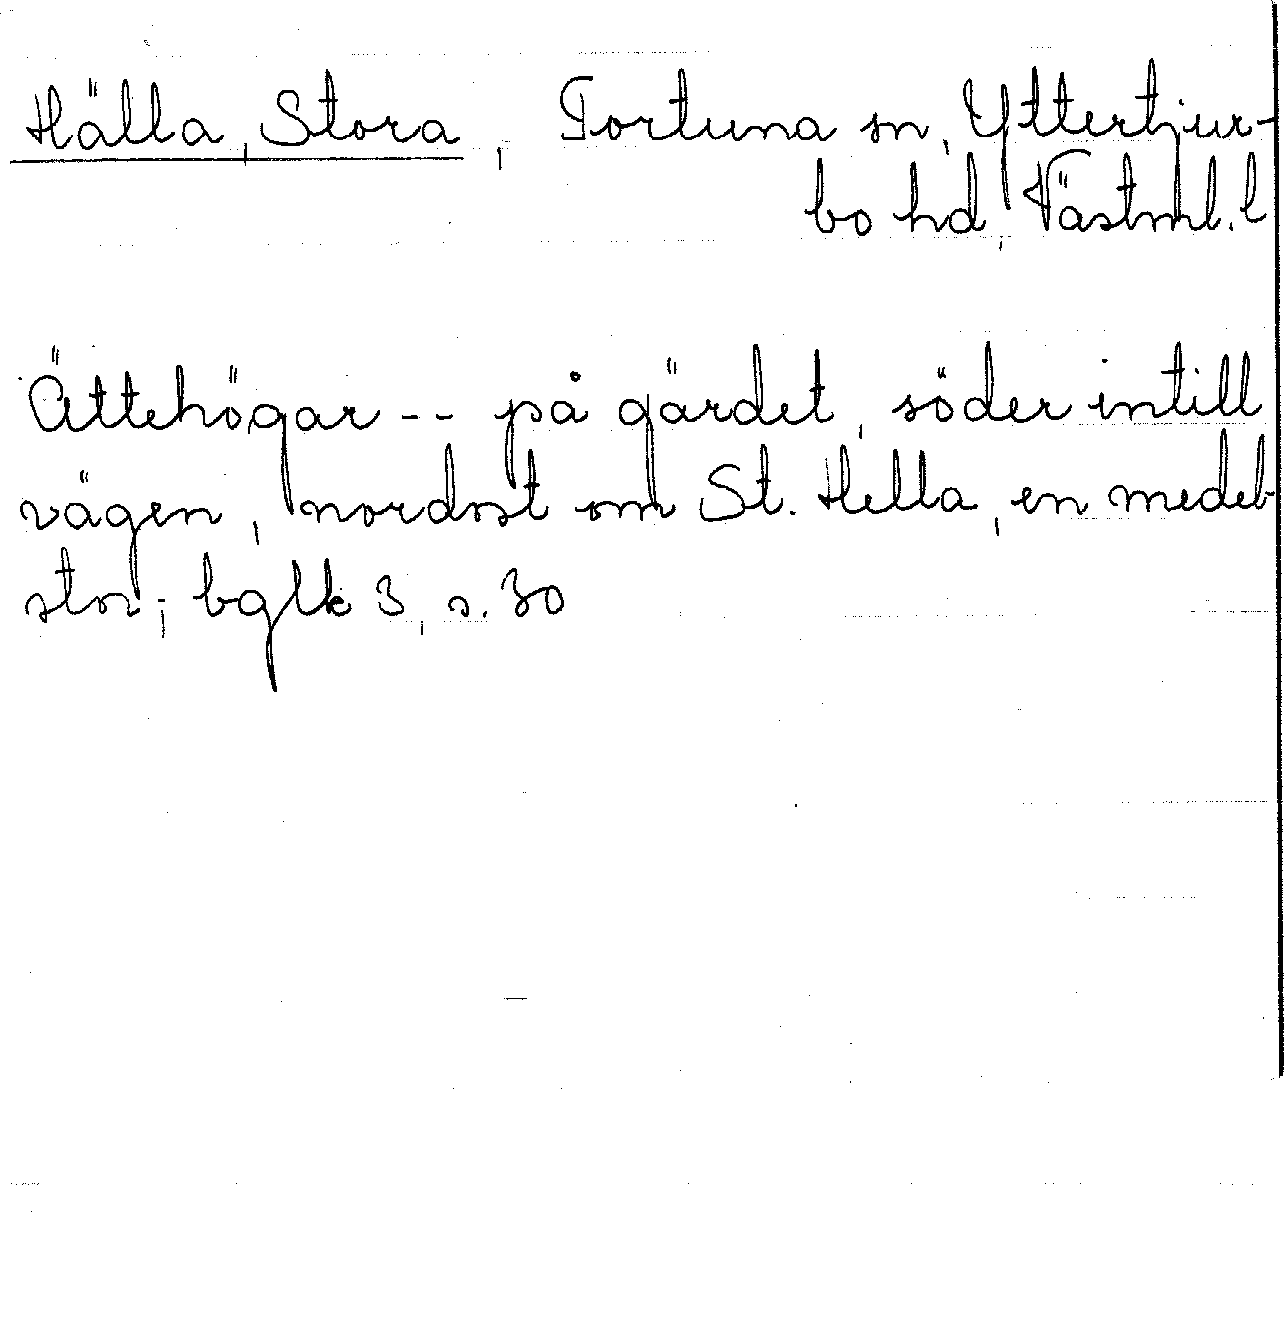 Hälla, Stora, Tortuna sn, Yttertjur-
bo hd, Västml. l
Ättehögar -- på gärdet, söder intill
vägen, nordost om St. Hella, en medel-
stor; bglk 3, s. 30